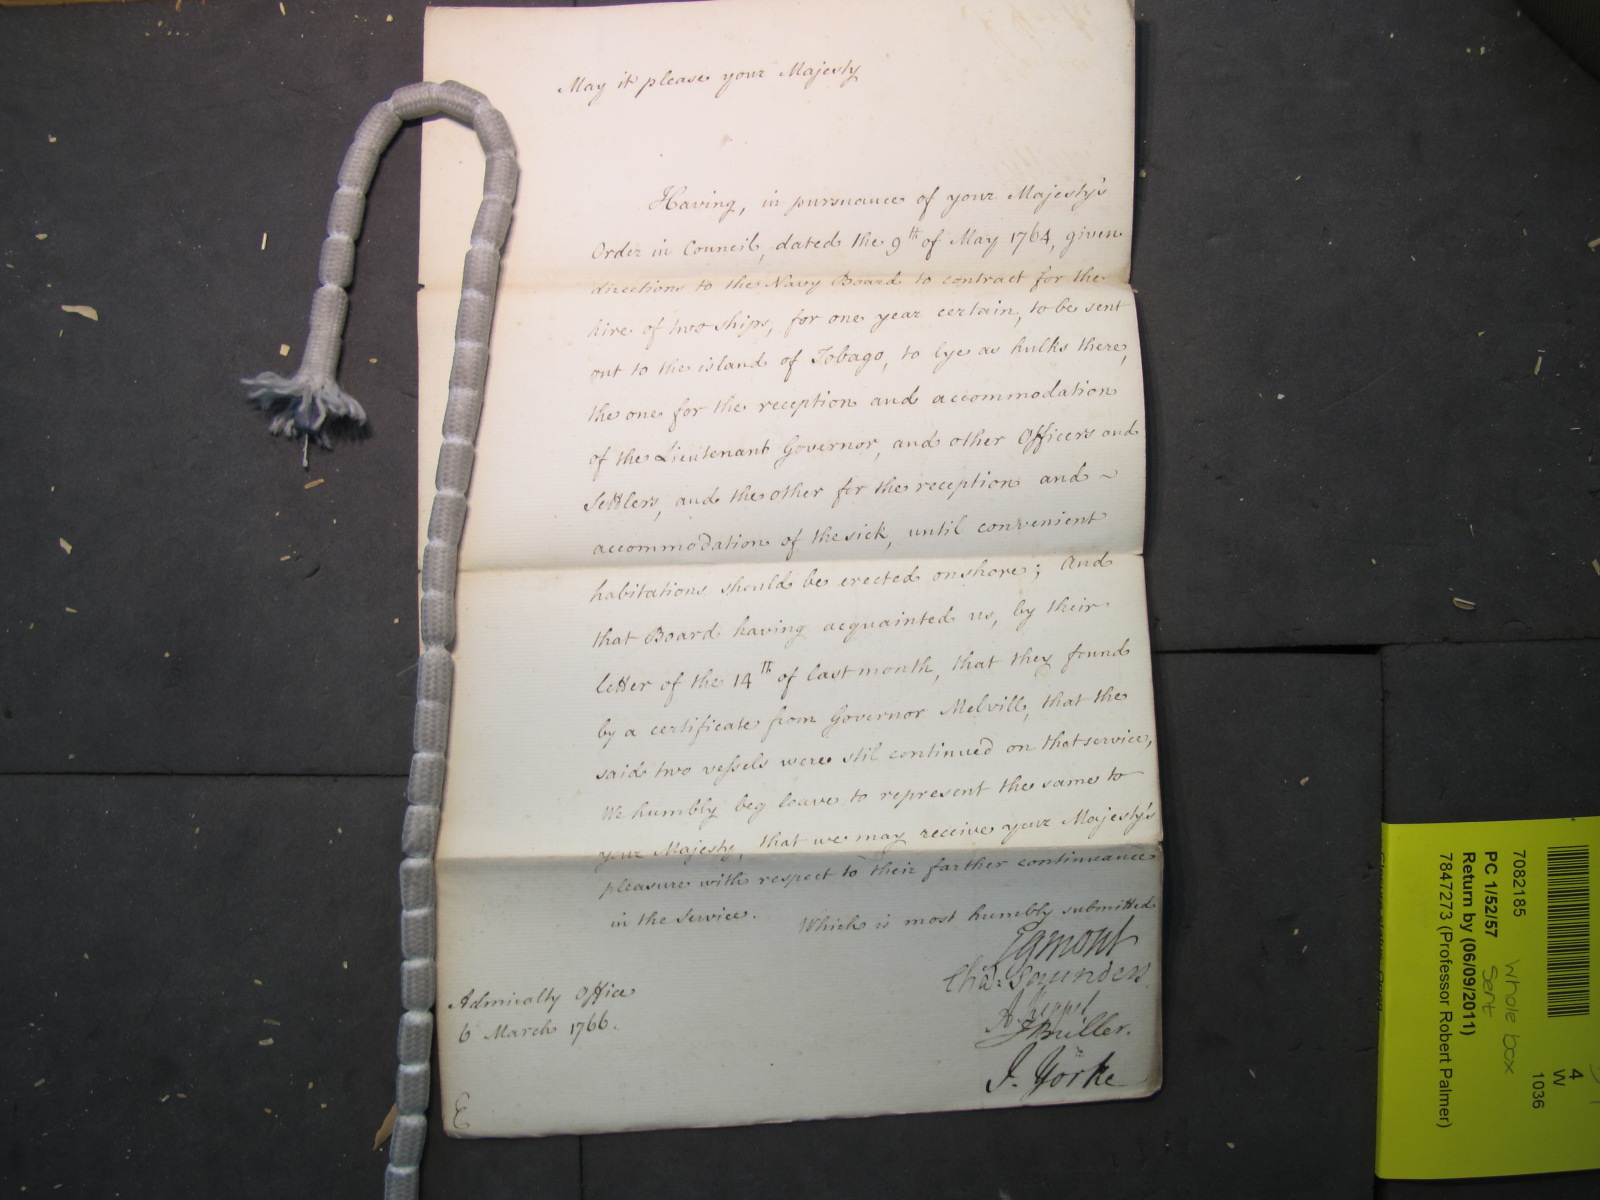 May it please your Majesty
Having, in pursuance of your Majesty's
Order in Council, dated the 9th of May 1764, given
directions to the Navy Board to contract for the
hire of two ships, for one year certain, to be sent
out to the island of Tobago, to lye as hulks there,
the one for the reception and accommodation
of the Lieutenant Governor, and other Officers and
Settlers, and the other for the reception and ~
accommodation of the sick, until convenient
habitations should be erected on shore; And
that Board having acquainted us, by their
letter of the 14th of last month, that they found
by a certificate from Governor Melvill, that the
said two vessels were stil continued on that service,
We humbly beg leave to represent the same to
your Majesty, that we may receive your Majesty's
pleasure with respect to their farther continuance
in the Service.
Which is most humbly submitted
Egmont
Cha: Saunders
A Keppel
J Buller.
J. Yorke
Admiralty Office
6 March 1766.
4
W
1036
7082185
PC 1/52/57
Return by (06/09/2011)
7847273 (Professor Robert Palmer)
Whole box
Sent